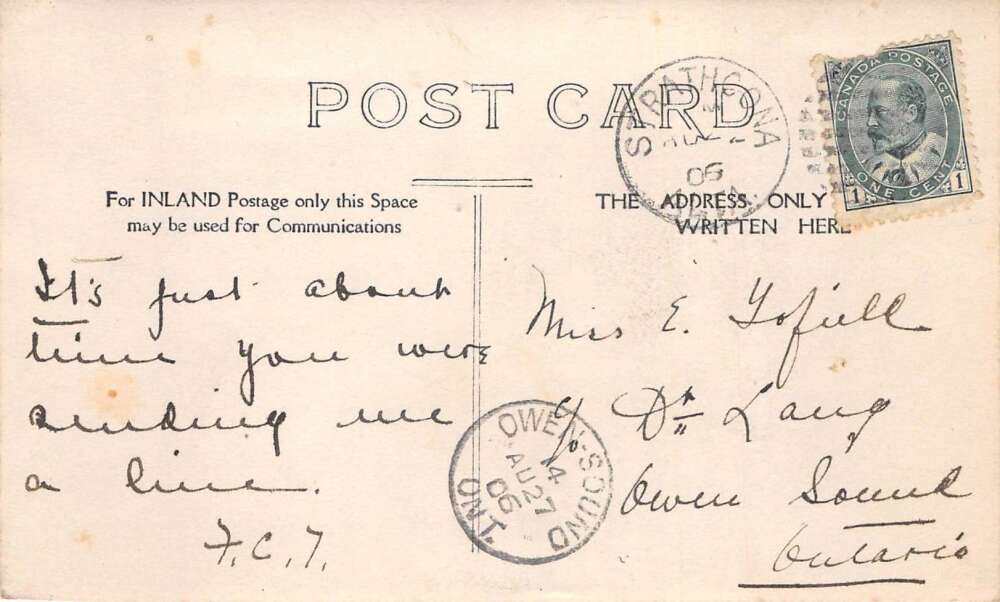 POST CARD
For INLAND Postage only this Space
may be used for Communications
THE ADDRESS ONLY
WRITTEN HERE
STRATHCONA
06
ALTA
CANADA POSTAGE
1 ONE CENT 1
It's just about
time you were
sending me
a line.
F.C.T.
Miss E.
c/o Dr. Lang
Owen Sound
Ontario
OWEN-SOUND
14
AU 27
06
ONT.